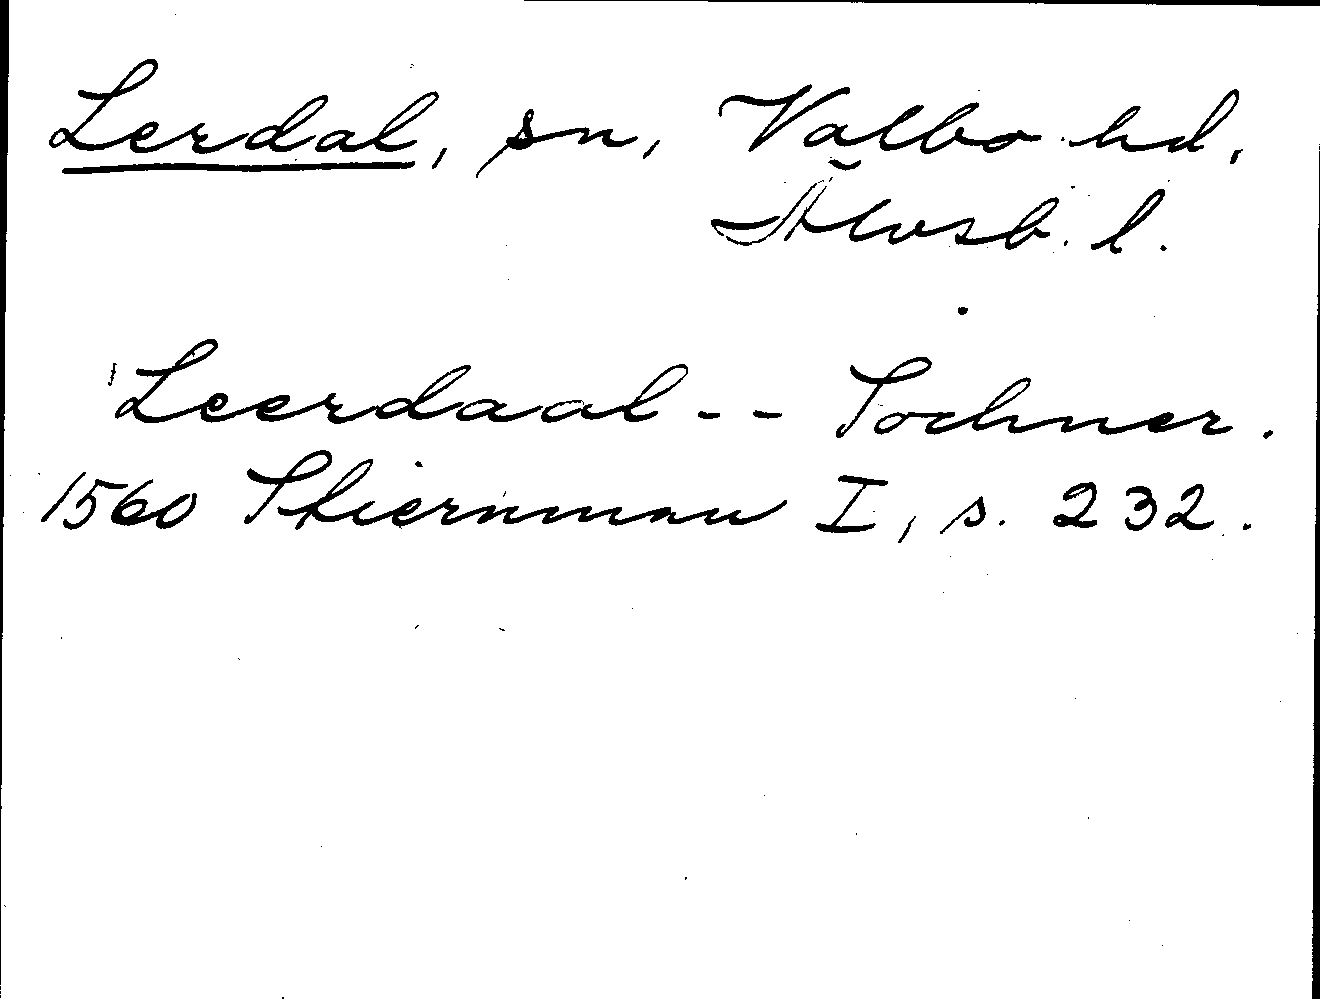 Lerdal, sn, Valbo hd,
Älvsb. l.
Leerdaal -- Sochner.
1560 Stiernman I, s. 232.